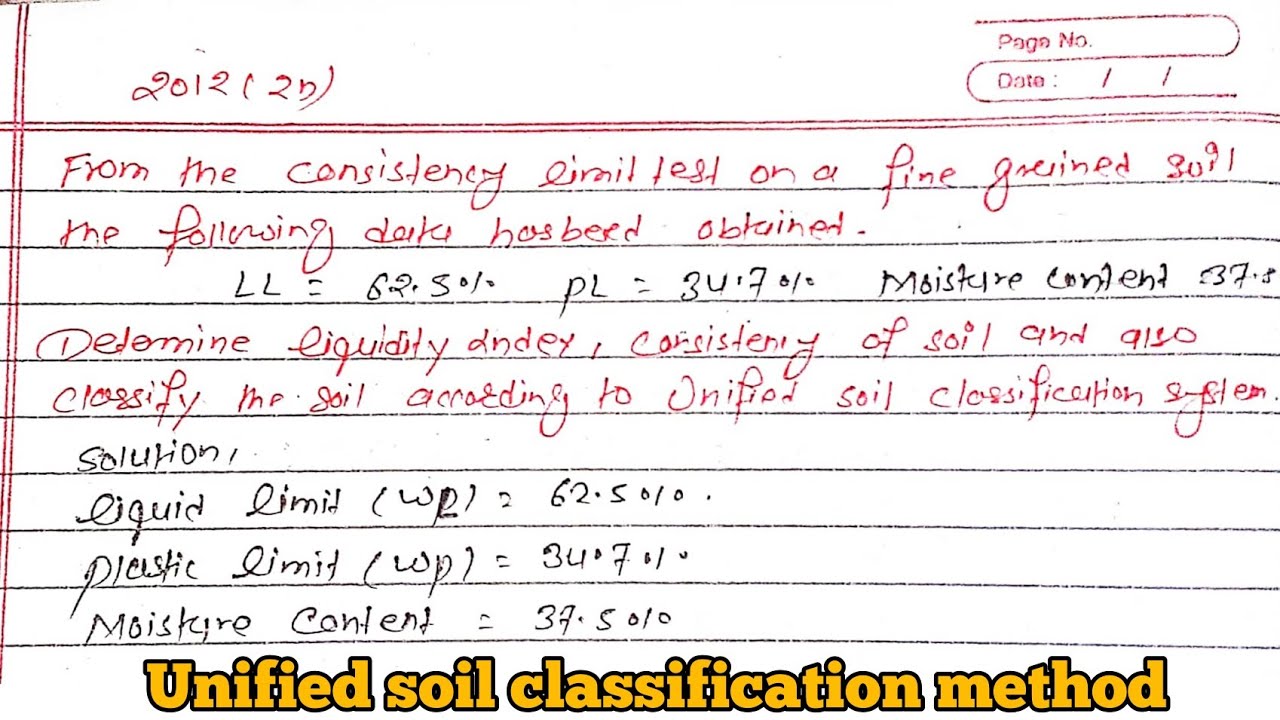 Page No.
Date : / /
2012 ( 2b)
From the consistency limit test on a fine grained soil
the following data has been obtained.
LL = 62.5% PL = 34.7% Moisture content =37.5
Determine liquidity index, consistency of soil and also
classify the soil according to Unified soil classification system.
solution,
liquid limit (wL) = 62.5%.
plastic limit (wp) = 34.7%.
Moisture Content = 37.5%
Unified soil classification method